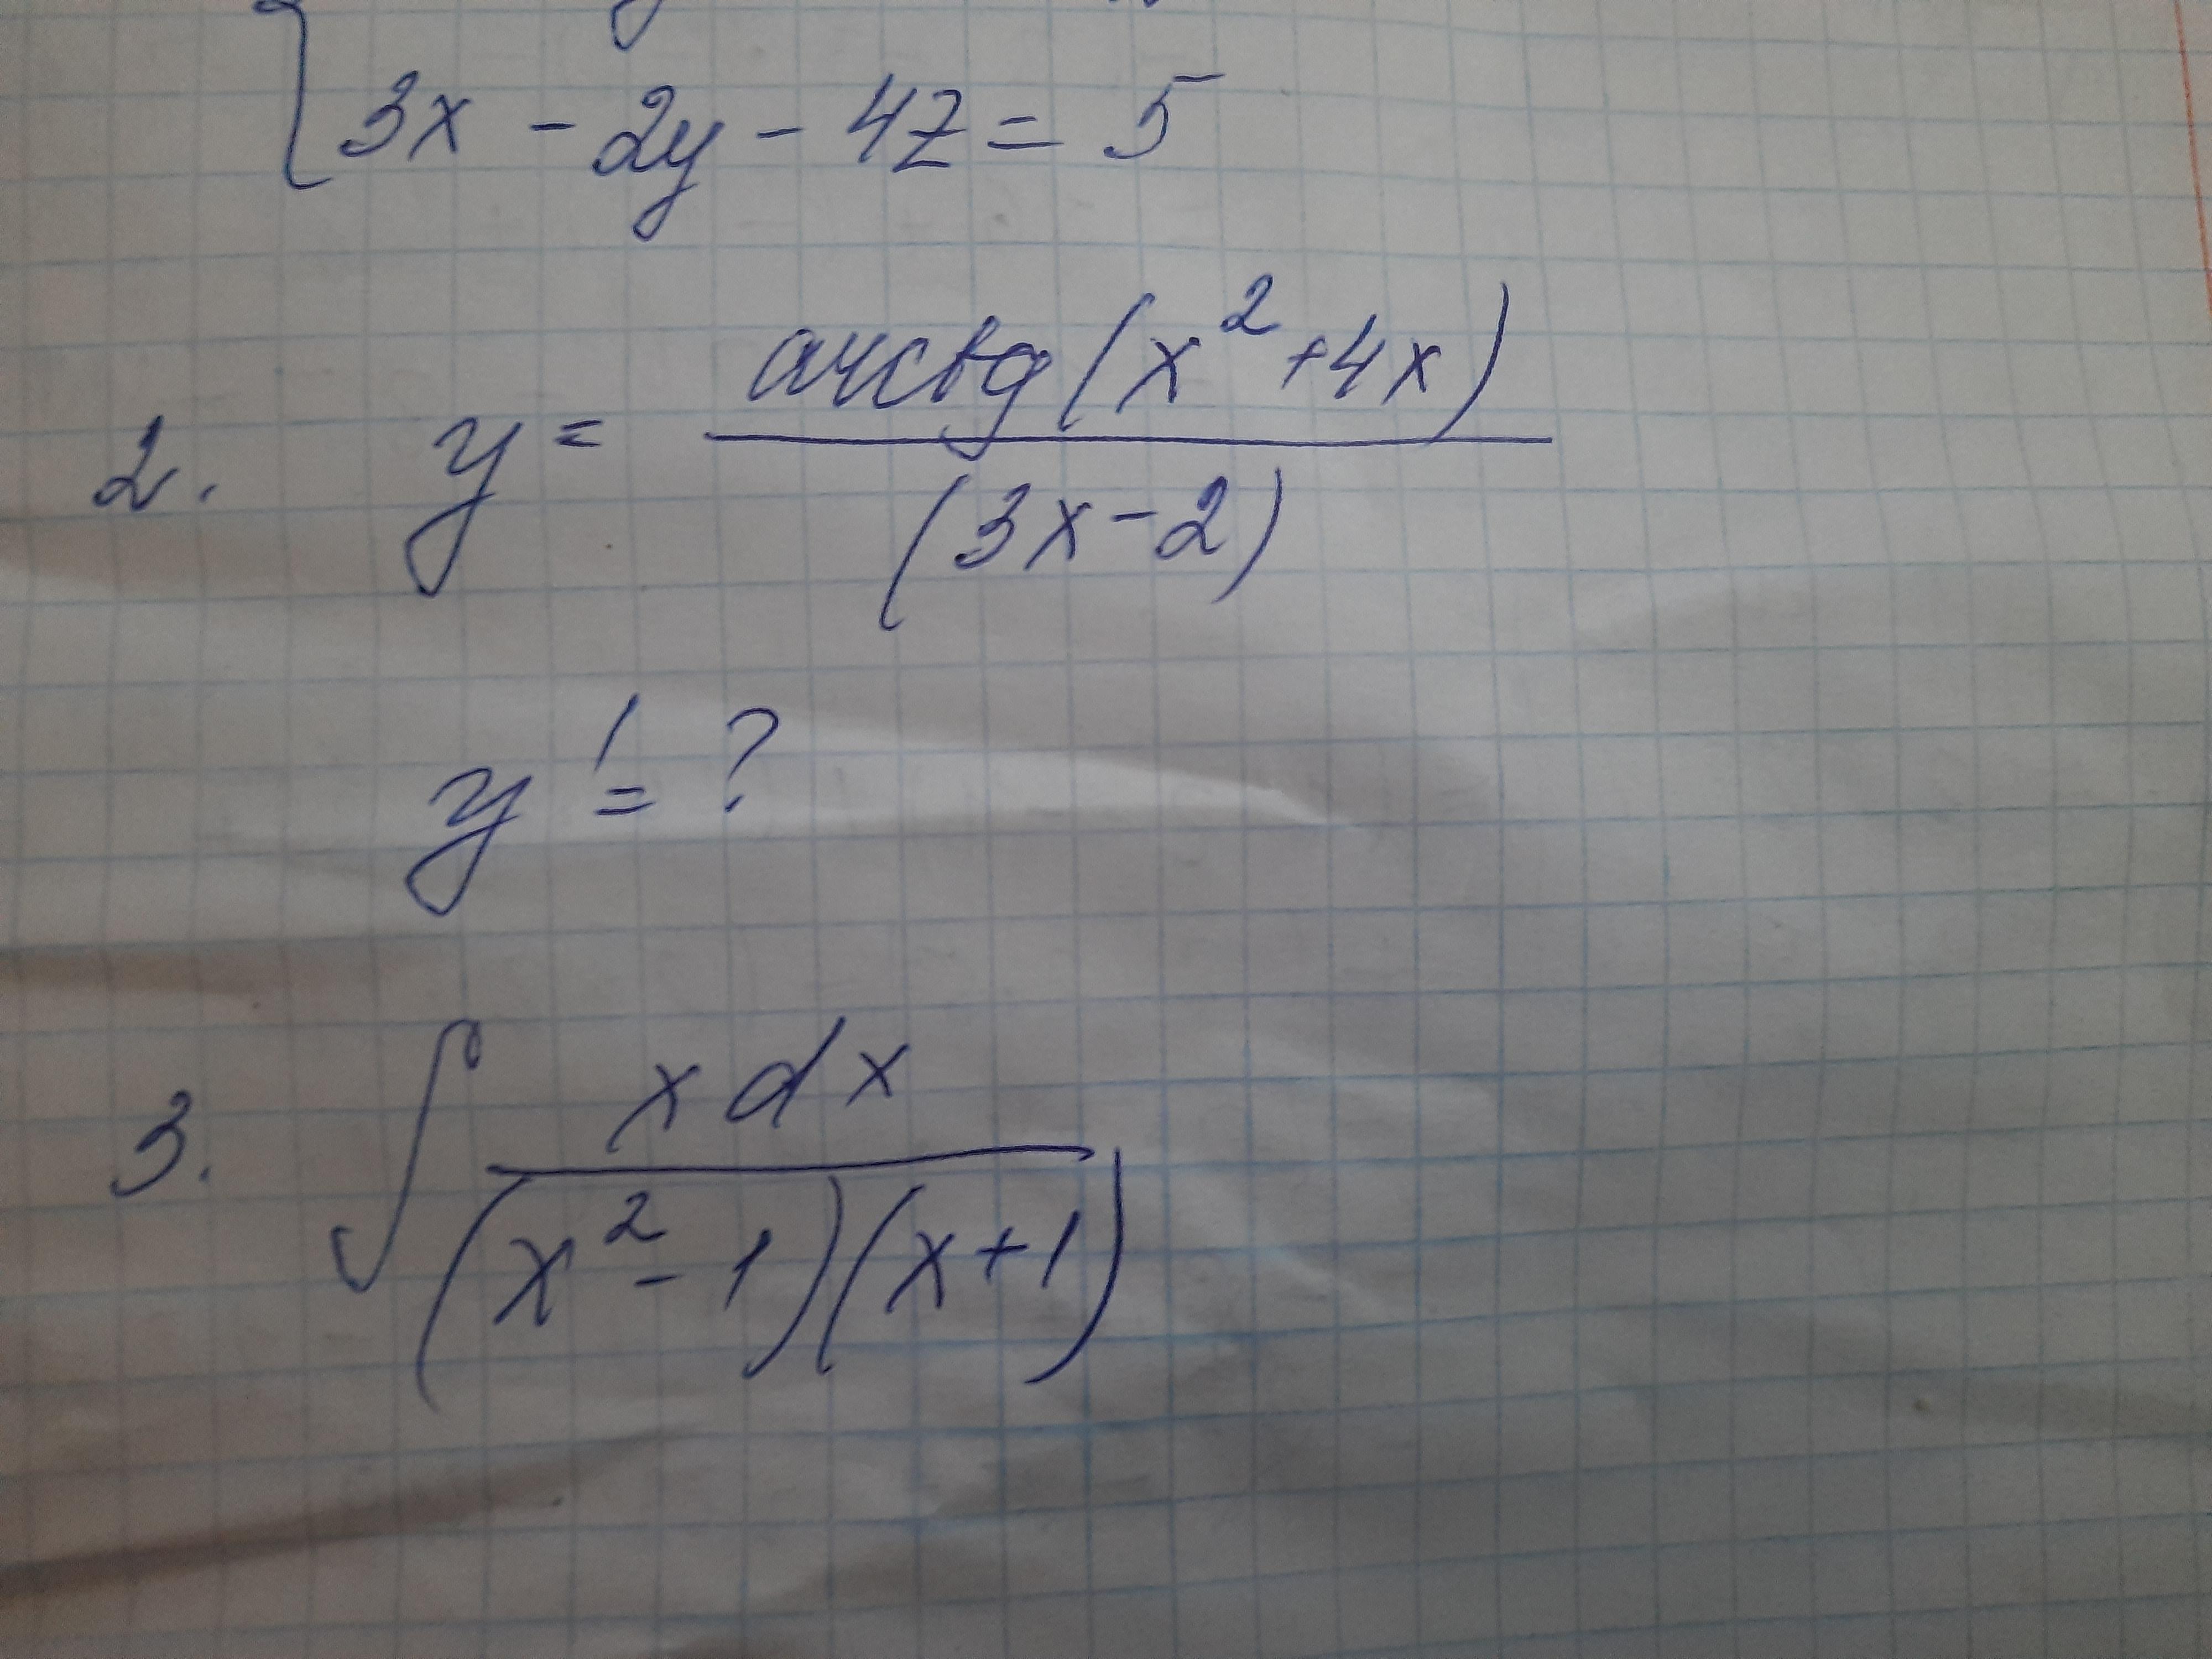 3x - 2y - 4z = 5
2. y = arctg(x²+4x)
(3x-2)
y' = ?
3. ∫ x dx
(x²-1)(x+1)